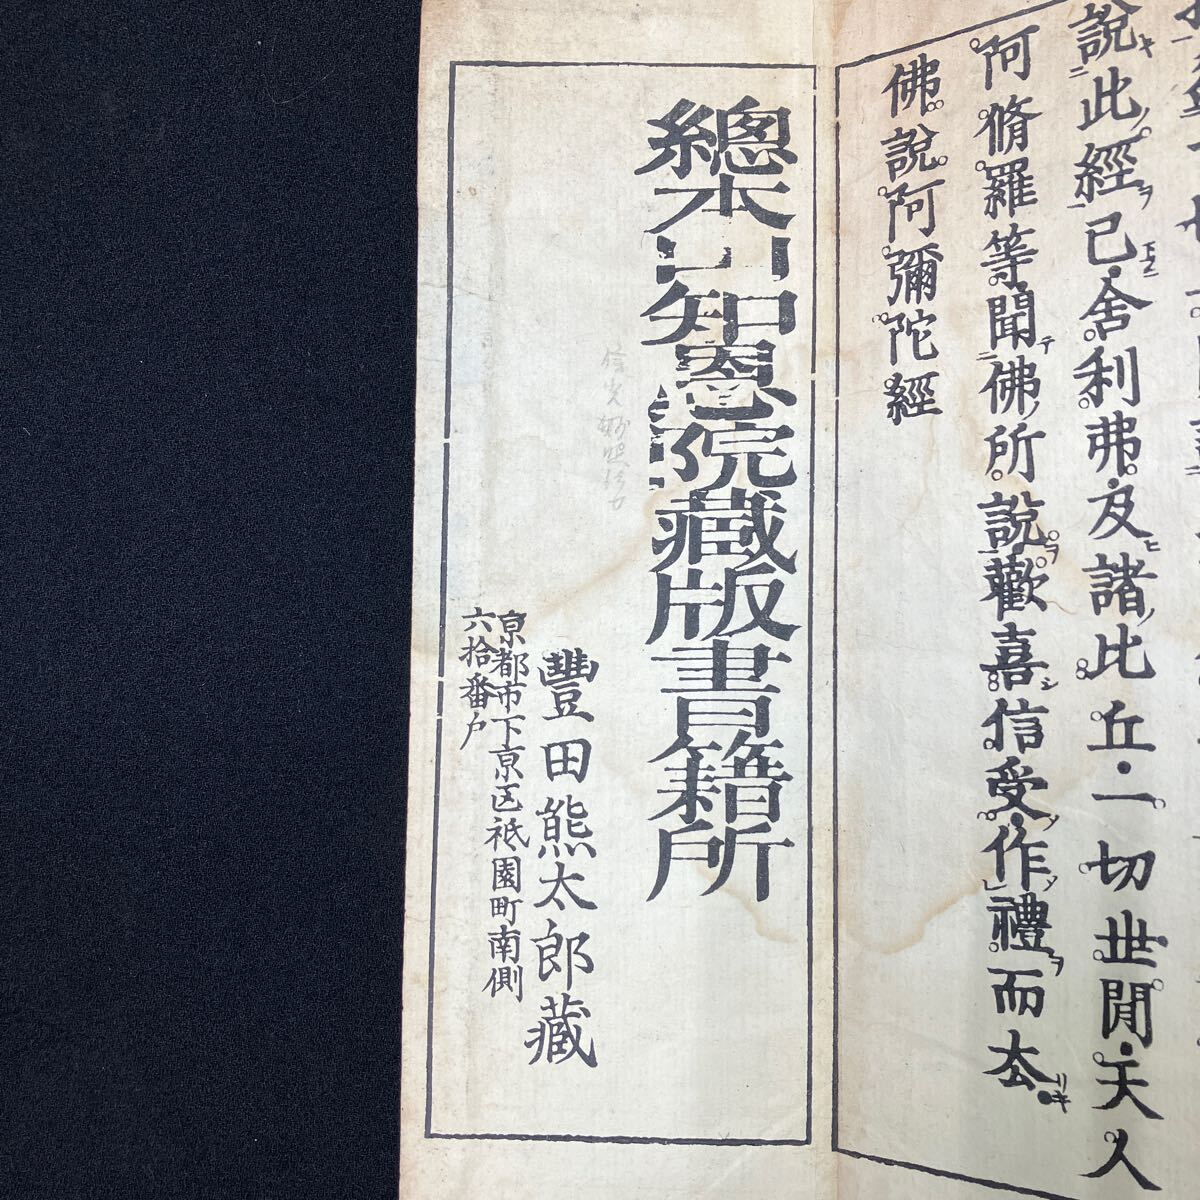 說此經已舍利弗及諸比丘一切世閒天人
阿脩羅等聞佛所說歡喜信受作禮而去
佛說阿彌陀經
總本山知恩院藏版書籍所
豐田熊太郎藏
京都市下京区祇園町南側
六拾番戶